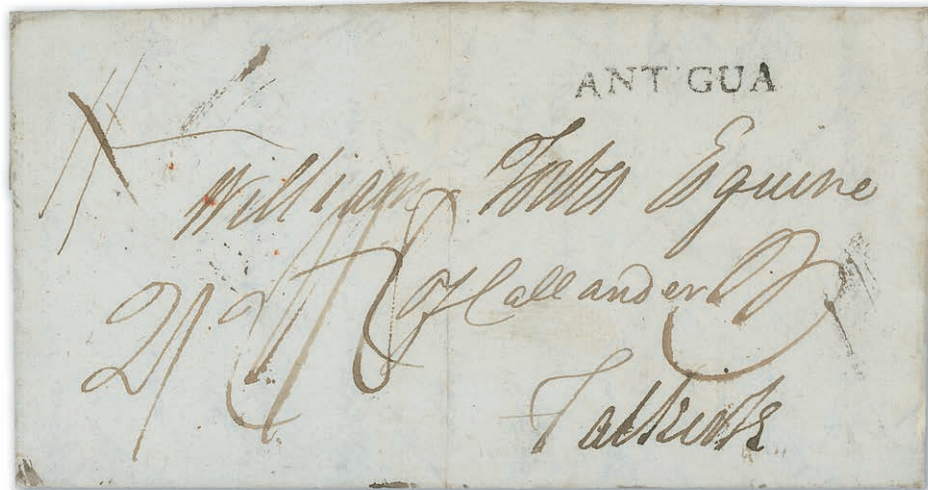 ANTIGUA
William Forbes Esquire
of Callander
Falkirk